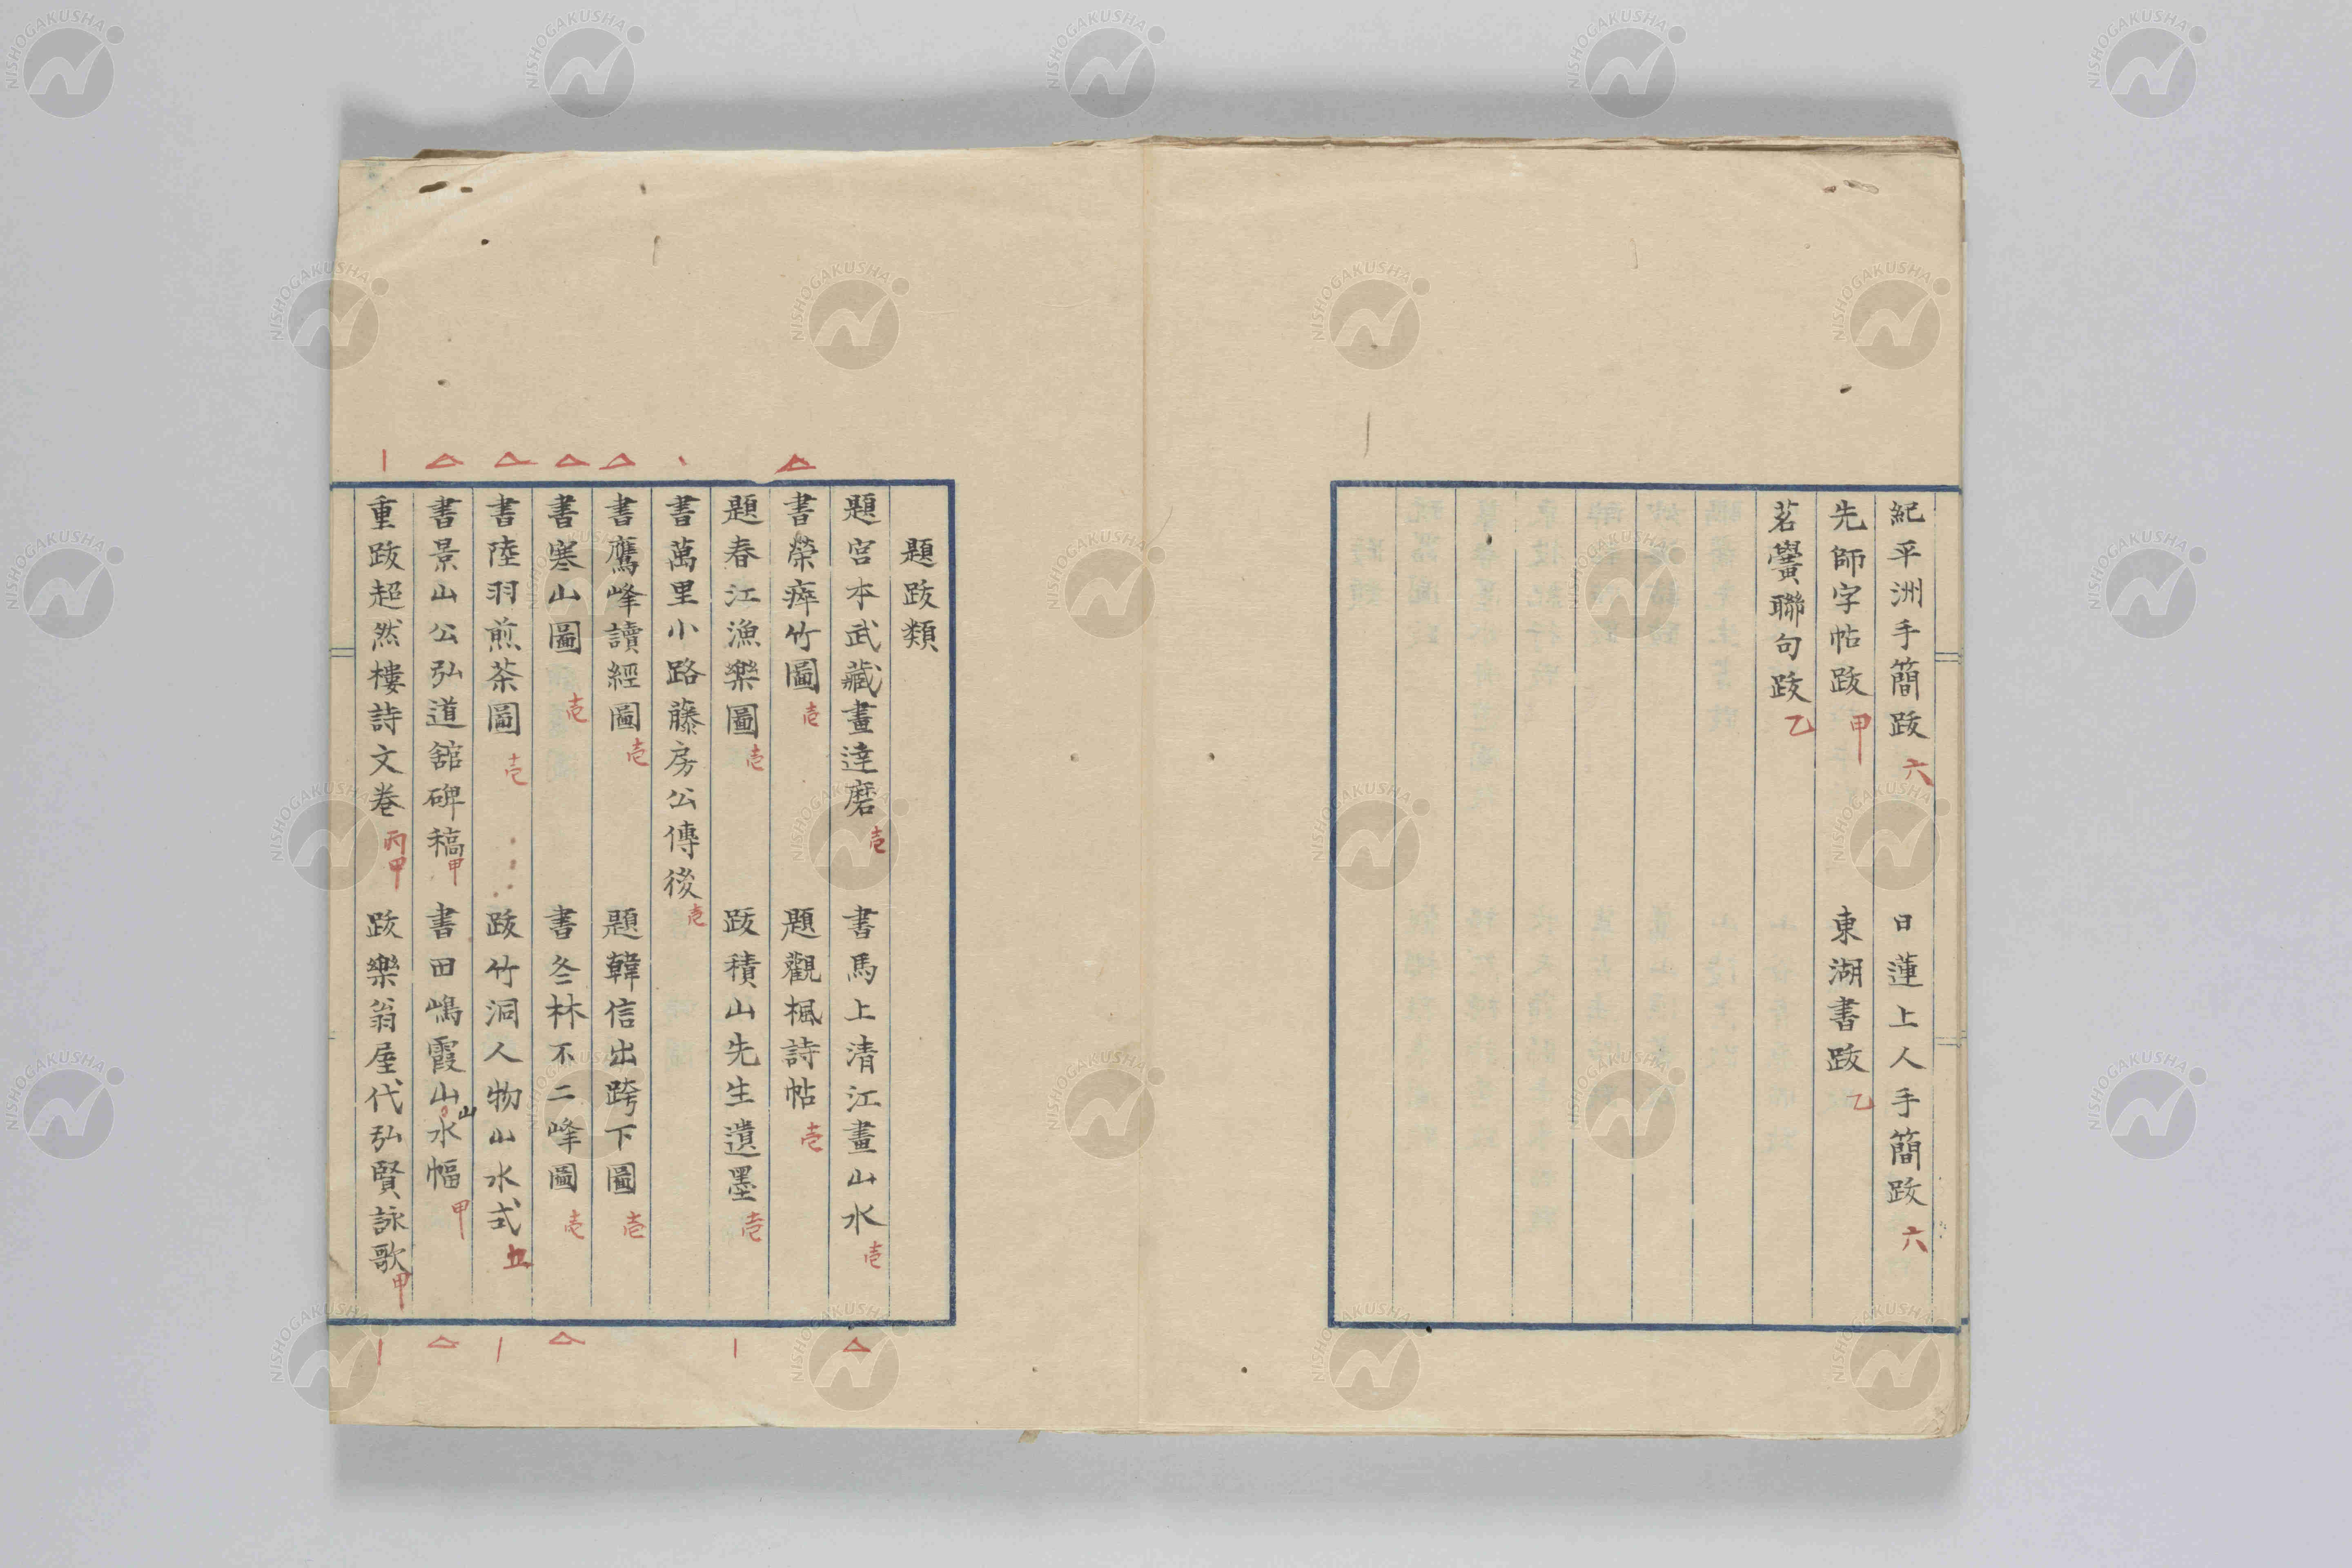 紀平洲手簡跋 六 日蓮上人手簡跋 六
先師字帖跋 甲 東湖書跋 乙
茗黌聯句跋 乙
題跋類
題宮本武藏畫達磨 壱 書馬上清江畫山水 壱
書榮瘁竹圖 壱 題觀楓詩帖 壱
題春江漁樂圖 壱 跋積山先生遺墨 壱
書萬里小路藤房公傳後 壱
書鷹峰讀經圖 壱 題韓信出跨下圖 壱
書寒山圖 壱 書冬林不二峰圖 壱
書陸羽煎茶圖 壱 跋竹洞人物山水式
書景山公弘道舘碑稿 甲 書田嶋霞山山水幅 甲
重跋超然樓詩文卷 丙甲 跋樂翁屋代弘賢詠歌 甲
NISHOGAKUSHA